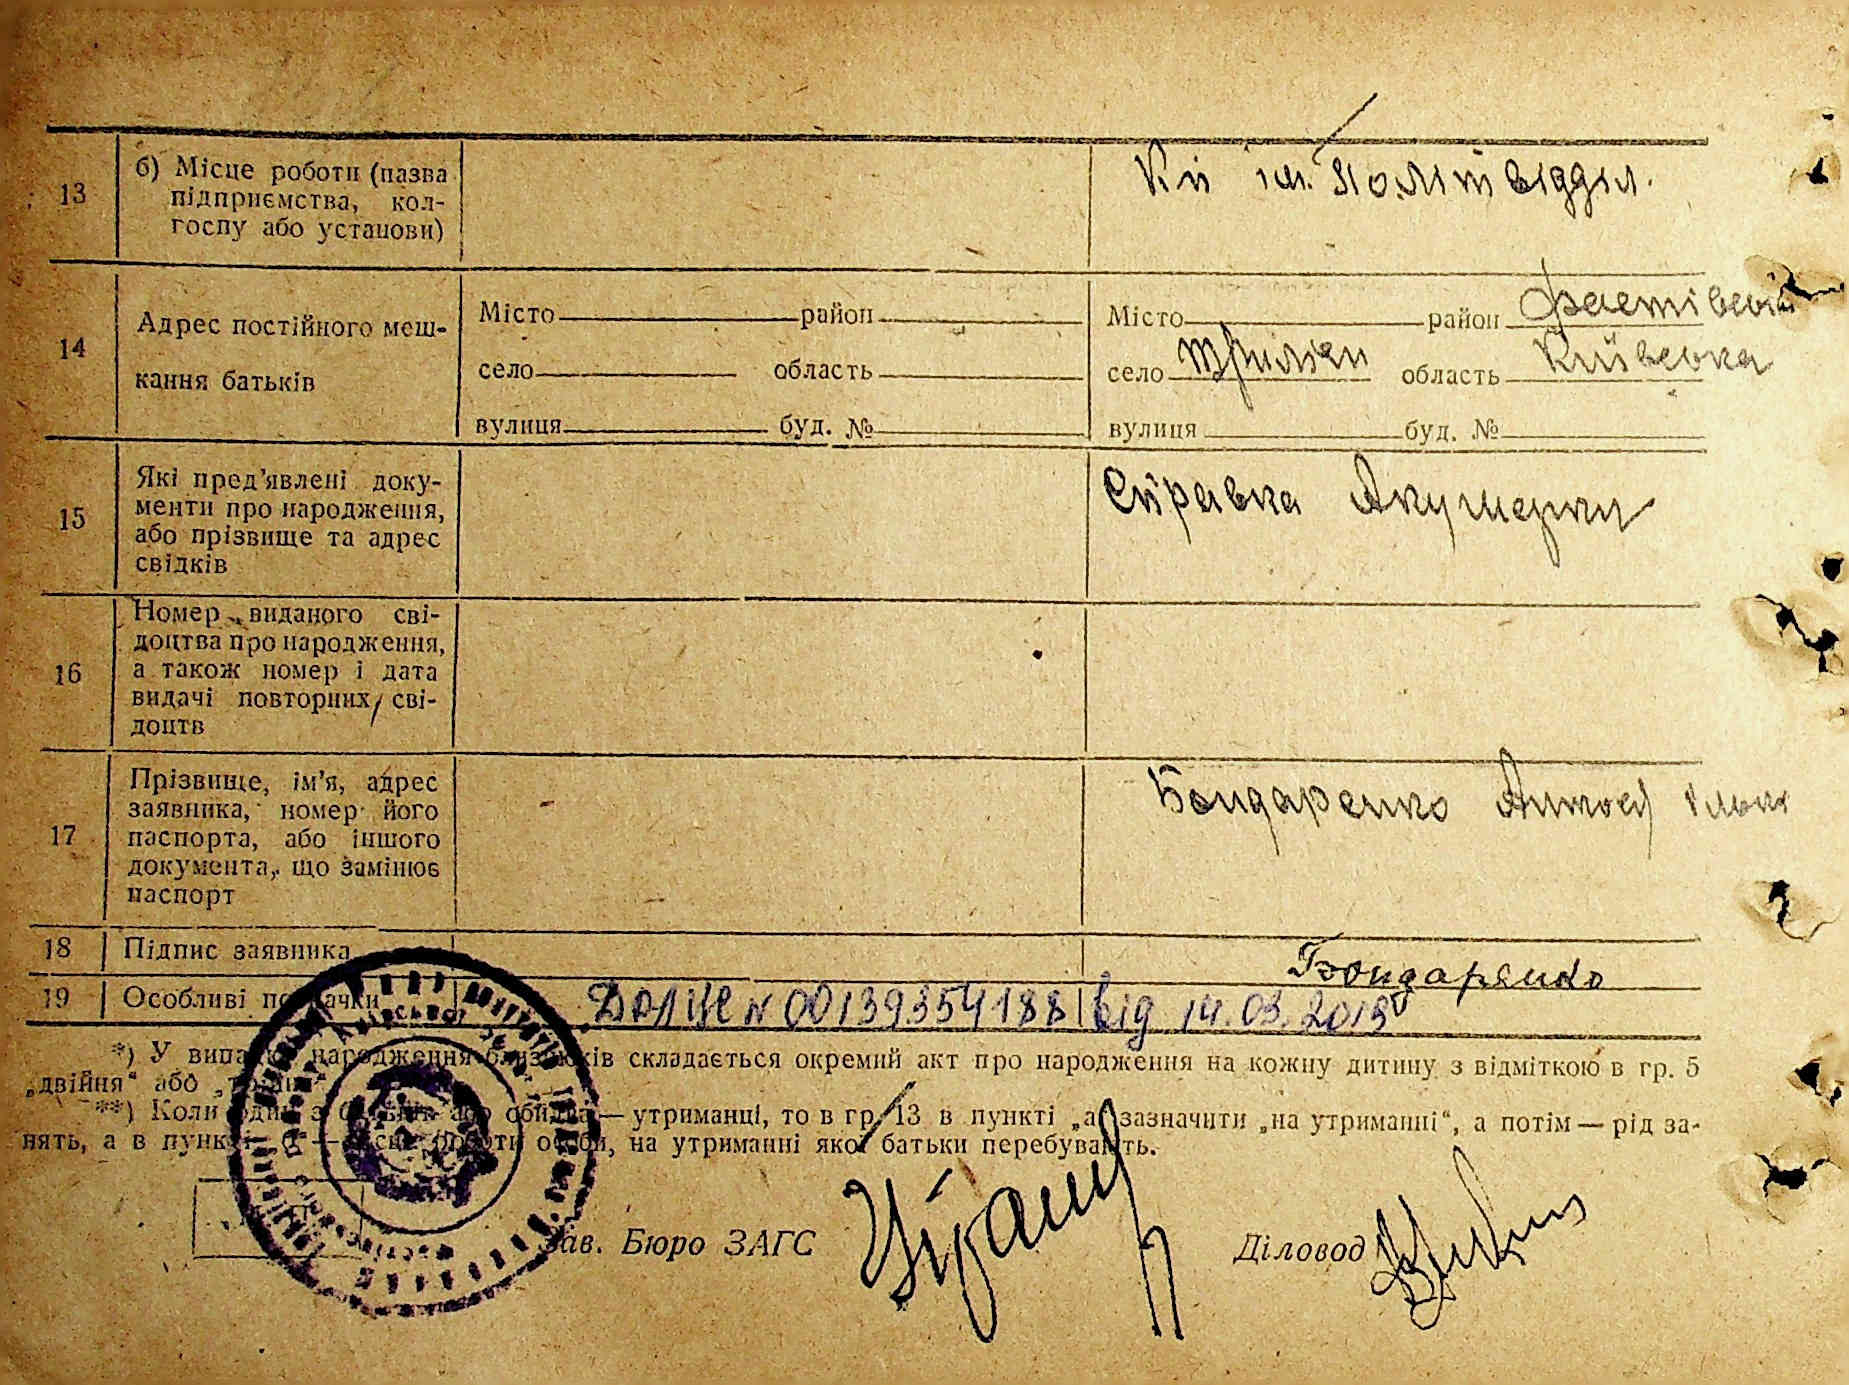 13 б) Місце роботи (назва підприємства, колгоспу або установи)
Кп ім. Політвідділ.
14 Адрес постійного мешкання батьків
Місто район
село область
вулиця буд. №
Місто район Фастівськ
село Трилісн область Київська
вулиця буд. №
15 Які пред'явлені документи про народження, або прізвище та адрес свідків
Справка Акушерки
16 Номер виданого свідоцтва про народження, а також номер і дата видачі повторних свідоцтв
17 Прізвище, ім'я, адрес заявника, номер його паспорта, або іншого документа, що замінює паспорт
Бондаренко Антося
18 Підпис заявника
Бондаренко
19 Особливі позначки
N 00139354188 від 14.03.2019
*) У випадку народження близнюків складається окремий акт про народження на кожну дитину з відміткою в гр. 5
„двійня“ або „трійня“
**) Коли один з батьків або обидва — утриманці, то в гр. 13 в пункті „а“ зазначити „на утриманні“, а потім — рід за-
нять, а в пункті „б“ — місце роботи особи, на утриманні якої батьки перебувають.
Зав. Бюро ЗАГС
Діловод